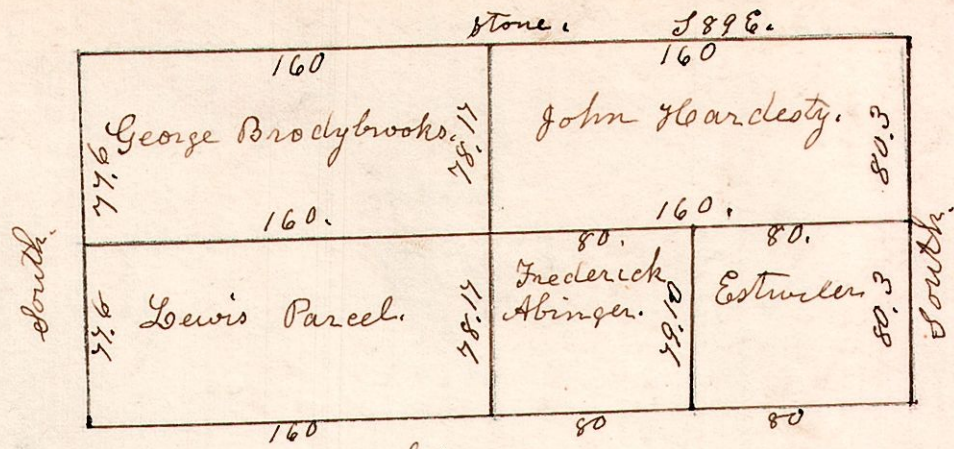 stone. S 89 E.
160 160
George Brodybrooks. John Hardesty.
77.6 78.17 80.3
160. 160.
South. South.
80. 80.
Lewis Parcel. Frederick Abinger.
77.6 78.17 80.3
160 80 80